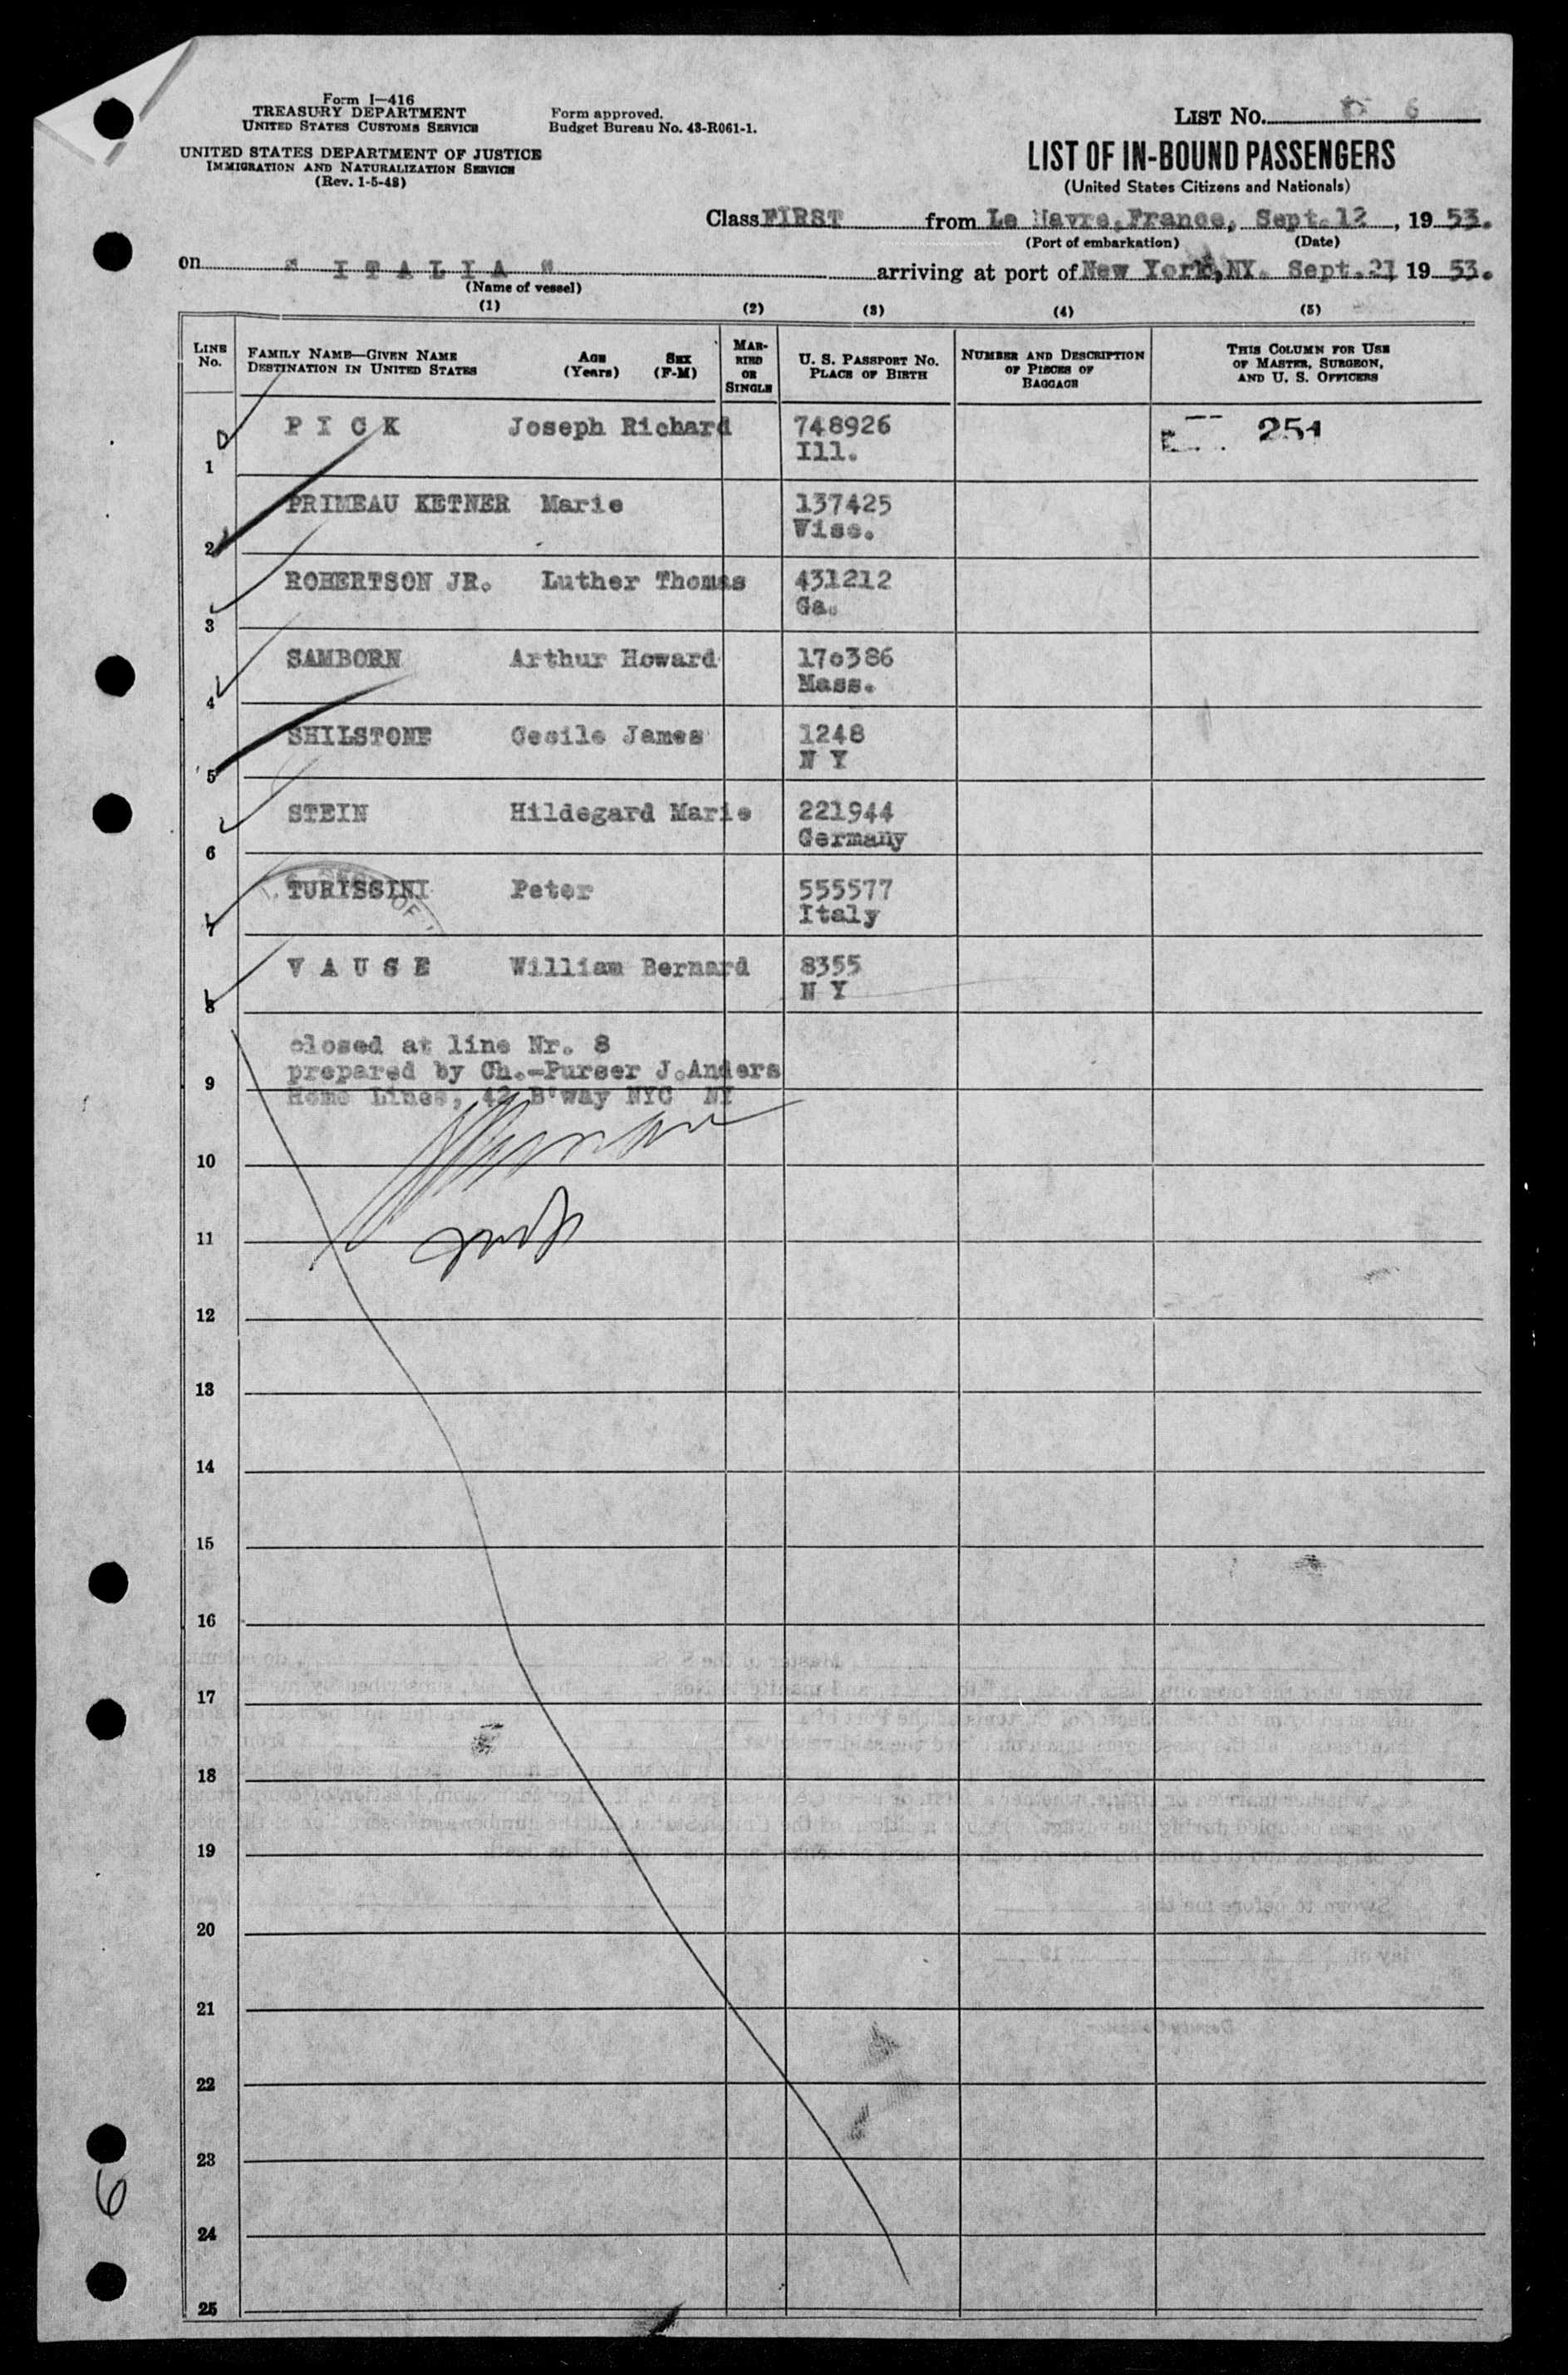 Form I—416
TREASURY DEPARTMENT
UNITED STATES CUSTOMS SERVICE
UNITED STATES DEPARTMENT OF JUSTICE
IMMIGRATION AND NATURALIZATION SERVICE
(Rev. 1-5-48)
Form approved.
Budget Bureau No. 43-R061-1.
LIST NO. 6
LIST OF IN-BOUND PASSENGERS
(United States Citizens and Nationals)
Class FIRST from Le Havre, France, Sept. 12, 19 53.
(Port of embarkation) (Date)
on " I T A L I A " arriving at port of New York, NY. Sept. 21 19 53.
(Name of vessel)
(1) (2) (3) (4) (5)
LINE No.
FAMILY NAME—GIVEN NAME
DESTINATION IN UNITED STATES
AGE (Years)
SEX (F-M)
MARRIED OR SINGLE
U. S. PASSPORT NO.
PLACE OF BIRTH
NUMBER AND DESCRIPTION
OF PIECES OF
BAGGAGE
THIS COLUMN FOR USE
OF MASTER, SURGEON,
AND U. S. OFFICERS
1 P I C K Joseph Richard 748926 251
Ill.
2 PRIMEAU KETNER Marie 137425
Wisc.
3 ROBERTSON JR. Luther Thomas 431212
Ga.
4 SAMBORN Arthur Howard 170386
Mass.
5 SHILSTONE Cecile James 1248
N Y
6 STEIN Hildegard Marie 221944
Germany
7 TURISSINI Peter 555577
Italy
8 V A U S E William Bernard 8355
N Y
closed at line Nr. 8
9 prepared by Ch.-Purser J.Anders
Home Lines, 42 B'way NYC NY
10
11
12
13
14
15
16
17
18
19
20
21
22
23
24
25
6